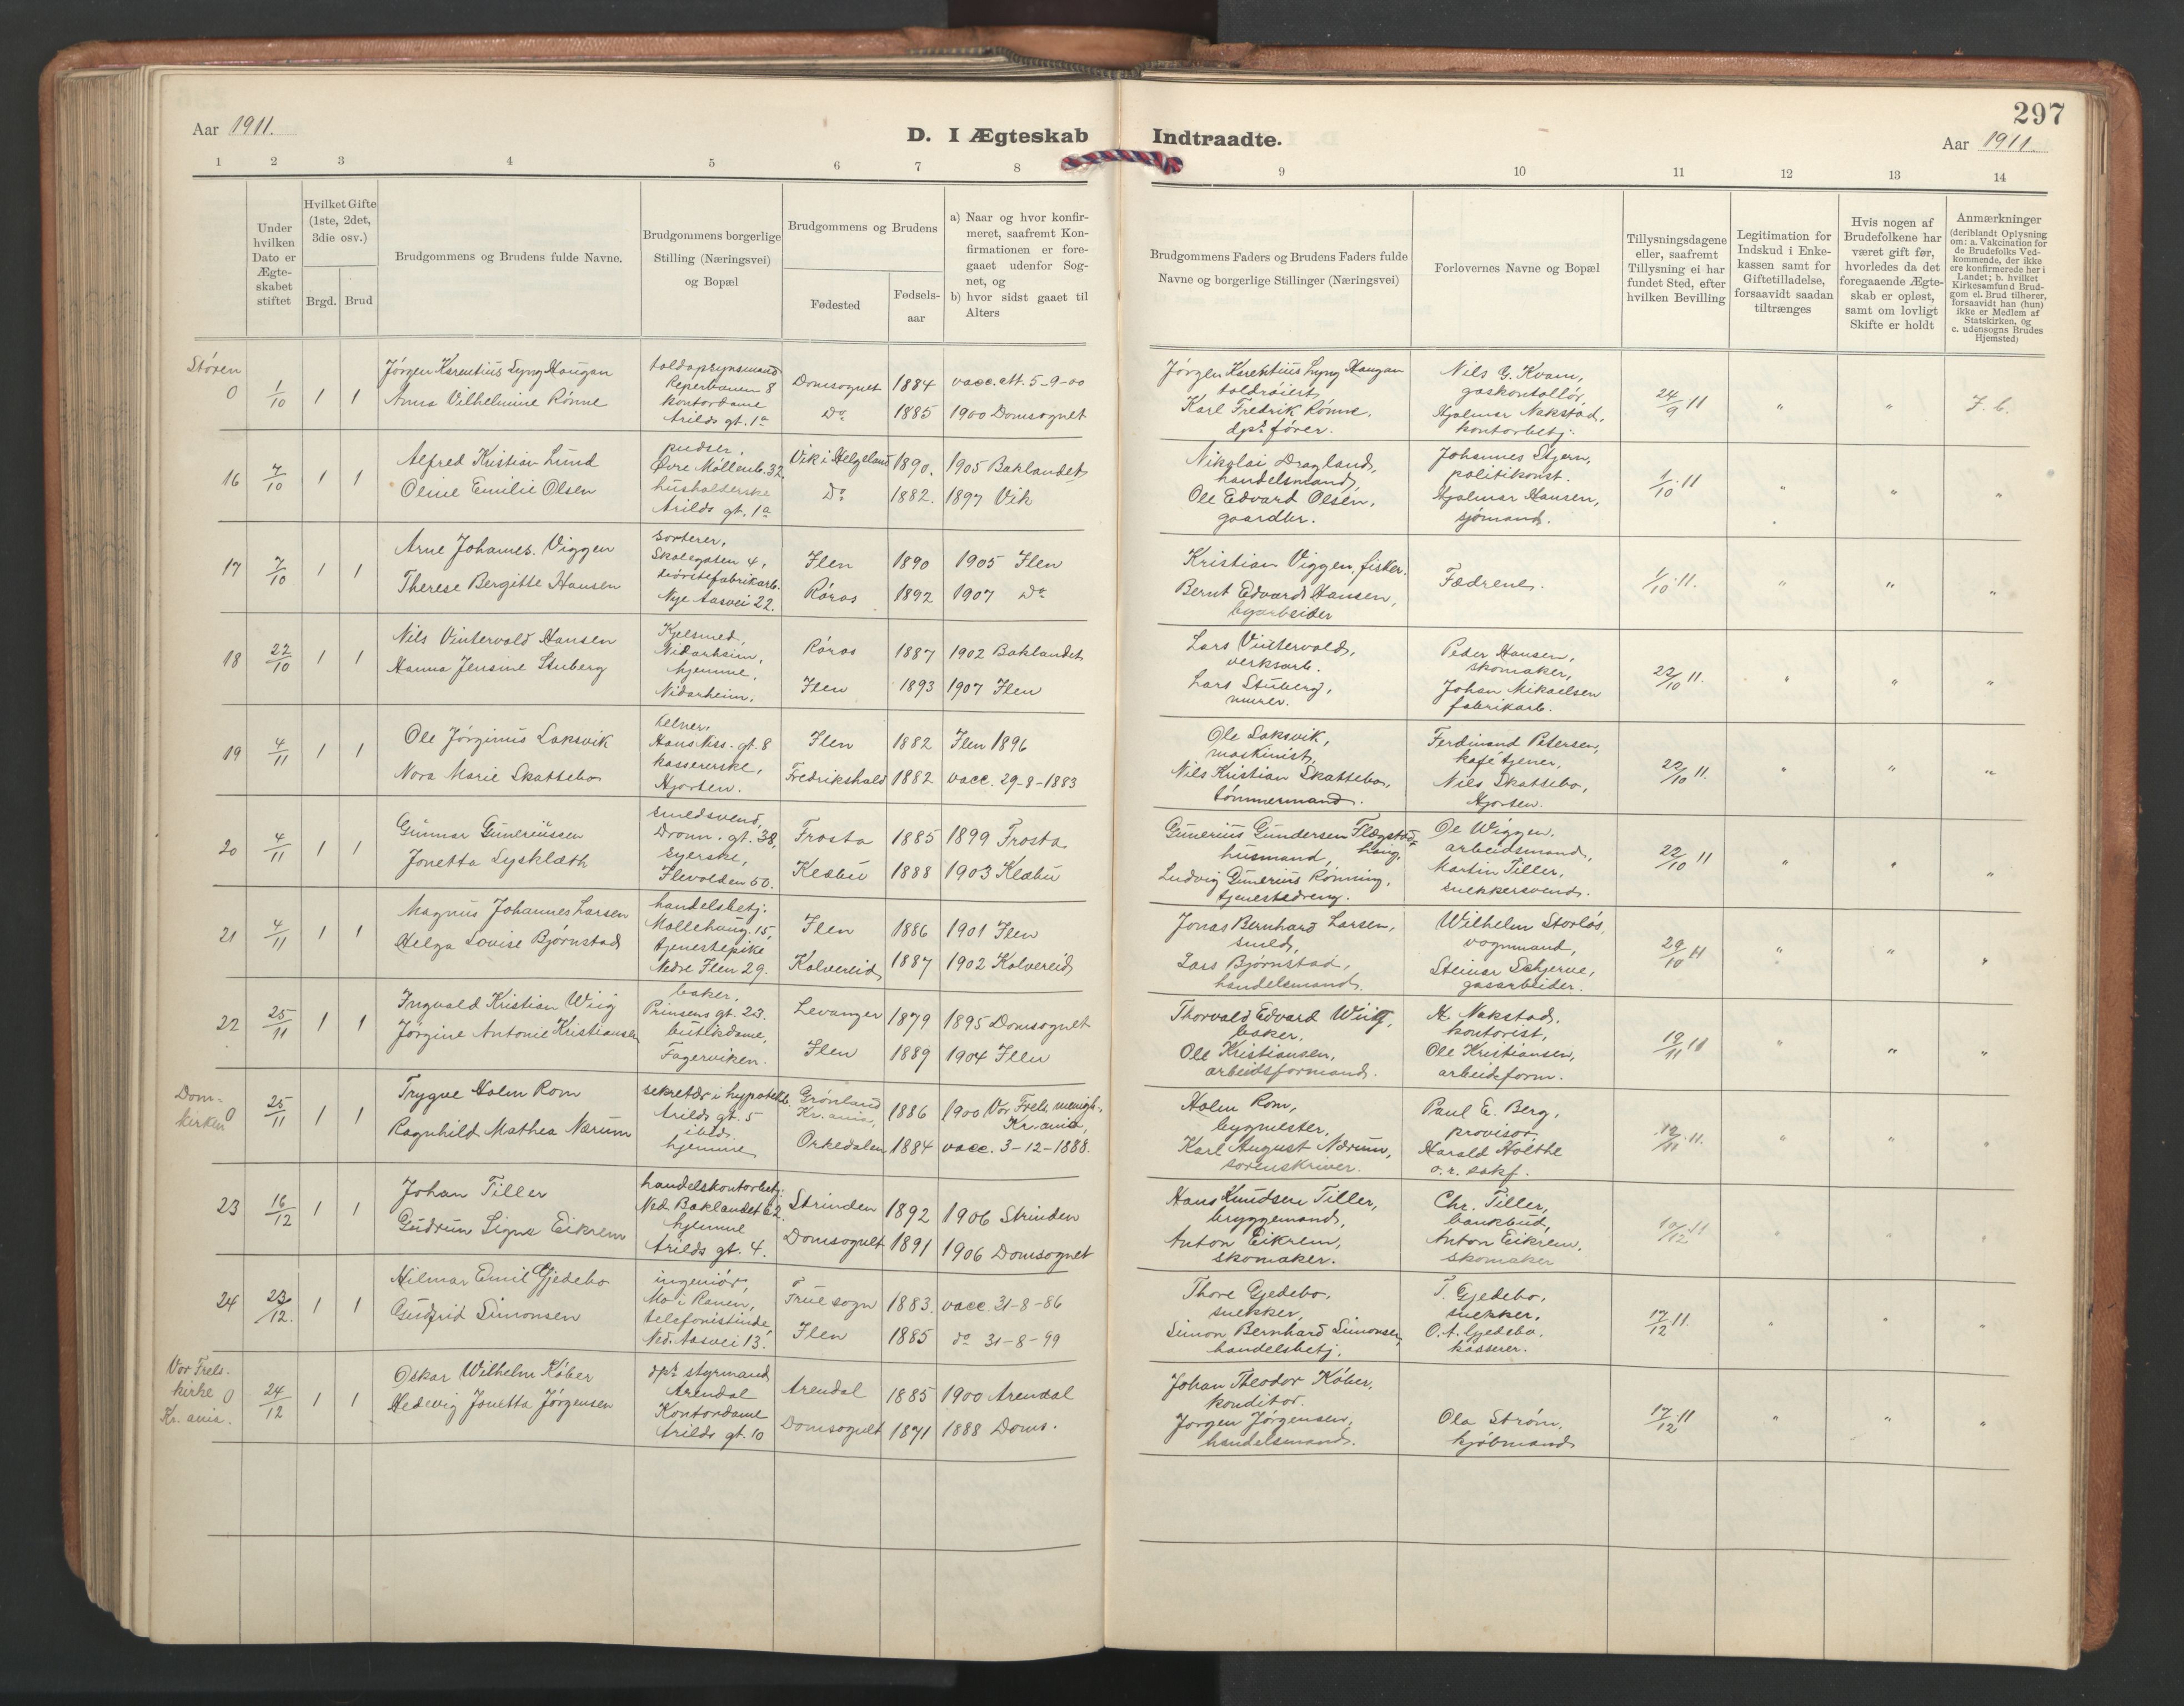 297
Aar 1911.
D. I Ægteskab Indtraadte.
Aar 1911.
1 2 3 4 5 6 7 8 9 10 11 12 13 14
Under hvilken Dato er Ægte-skabet stiftet
Hvilket Gifte (1ste, 2det, 3die osv.)
Brgd. Brud
Brudgommens og Brudens fulde Navne.
Brudgommens borgerlige Stilling (Næringsvei) og Bopæl
Brudgommens og Brudens
Fødested
Fødsels-aar
a) Naar og hvor konfir-meret, saafremt Kon-firmationen er fore-gaaet udenfor Sog-net, og
b) hvor sidst gaaet til Alters
Brudgommens Faders og Brudens Faders fulde Navne og borgerlige Stillinger (Næringsvei)
Forlovernes Navne og Bopæl
Tillysningsdagene eller, saafremt Tillysning ei har fundet Sted, efter hvilken Bevilling
Legitimation for Indskud i Enke-kassen samt for Giftetilladelse, forsaavidt saadan tiltrænges
Hvis nogen af Brudefolkene har været gift før, hvorledes da det foregaaende Ægte-skab er opløst, samt om lovligt Skifte er holdt
Anmærkninger (deriblandt Oplysning om: a. Vakcination for de Brudefolks Ved-kommende, der ikke ere konfirmerede her i Landet; b. hvilket Kirkesamfund Brud-gom el. Brud tilhører, forsaavidt han (hun) ikke er Medlem af Statskirken, og c. udensogns Brudes Hjemsted)
Støren
0 1/10 1 1
Jörgen Karentius Lyng Haugan
Anna Vilhelmine Rönne
toldopsynsmand
Reperbanen 8
kontordame
Arilds gt. 1a
Domsognet 1884 vacc. att. 5-9-00
Do 1885 1900 Domsognet
Jörgen Karentius Lyng Haugan
toldroiert
Karl Fredrik Rönne,
dpsk. förer.
Nils G. Kvam,
gaskontollör,
Hjalmar Nakstad,
kontorbetj.
24/9 11 " " J. b.
16 7/10 1 1
Alfred Kristian Lund
Oline Emilie Olsen
pudser,
Övre Möllenb. 32
husholderske
Arilds gt. 1a
Vik i Helgeland 1890. 1905 Baklandet
Do 1882. 1897 Vik
Nikolai Dragland,
handelsmand,
Ole Edvard Olsen,
gaardbr.
Johannes Stjern,
politikonst.
Hjalmar Hansen,
sjömand.
1/10 11 " " "
17 7/10 1 1
Arne Johannes Viggen
Therese Bergitte Hansen
sorterer,
Skolegaten 4,
börstefabrikarb.
Nye Aasvei 22.
Ilen 1890 1905 Ilen
Röros 1892 1907 Do
Kristian Viggen, fisker.
Bernt Edvard Hansen,
byarbeider
Fædrene.
1/10 11. " " "
18 22/10 1 1
Nils Vintervold Hansen
Hanna Jensine Stuberg
Kjelsmed,
Nidarheim,
hjemme,
Nidarheim.
Röros 1887 1902 Baklandet
Ilen 1893 1907 Ilen
Lars Vintervold,
verksarb.
Lars Stuberg,
murer.
Peder Hansen,
skomaker,
Johan Mikaelsen
fabrikarb.
22/10 11. " " "
19 4/11 1 1
Ole Jörginus Laksvik
Nora Marie Skattebo
kelner,
Hans Niss. gt. 8
kassererske,
Hjorten.
Ilen 1882 Ilen 1896
Fredrikshald 1882 vacc. 29-8-1883
Ole Laksvik,
maskinist,
Nils Kristian Skattebo,
tömmermand.
Ferdinand Petersen,
kafétjener,
Nils Skattebo,
Hjorten.
22/10 11. " " "
20 4/11 1 1
Gunnar Guneriussen
Jonetta Lysklæth
smedsvend,
Dronn. gt. 38,
syerske,
Ilevolden 50.
Frosta 1885 1899 Frosta
Klæbu 1888 1903 Klæbu
Gunerius Gundersen
husmand,
Ludvig Gunerius Rönning,
tjenestedreng.
Ole Wiggen,
arbeidsmand,
Martin Tiller,
snekkersvend.
22/10 11 " " "
21 4/11 1 1
Magnus Johannes Larsen
Helga Lovise Bjørnstad
handelsbetj.
Möllehaug. 15,
tjenestepike
Nedre Ilen 29.
Ilen 1886 1901 Ilen
Kolvereid 1887 1902 Kolvereid
Jonas Bernhard Larsen,
smed,
Lars Bjørnstad,
handelsmand.
Wilhelm Storlös,
vognmand,
Steinar Schjerve,
gasarbeider.
29/10 11 " " "
22 25/11 1 1
Ingvald Kristian Wiig
Jörgine Antonie Kristiansen
baker,
Prinsens gt. 23.
butikdame,
Fagerviken.
Levanger 1879 1895 Domsognet
Ilen 1889 1904 Ilen
Thorvald Edvard Wiig,
baker,
Ole Kristiansen,
arbeidsformand.
H. Nakstad,
kontorist,
Ole Kristiansen,
arbeidsform.
19/11 11 " " "
Dom-
kirken
0 25/11 1 1
Trygve Holm Rom
Ragnhild Mathea Nærum
sekretær i hypotekb.
Arilds gt. 5
ibid.
hjemme
Grönland
Kr.ania, 1886 1900 Vor Frels. menigh.
Kr.ania,
Orkedalen 1884 vacc. 3-12-1888.
Holm Rom,
bygmester,
Karl August Nærum,
sorenskriver.
Paul E. Berg,
provisor
Harald Holthe
o.r. sakf.
12/11 11. " " "
23 16/12 1 1
Johan Tiller
Gudrun Signe Eikrem
handelskontorbetj.
Ned. Baklandet 62.
hjemme
Arilds gt. 4.
Strinden 1892 1906 Strinden
Domsognet 1891 1906 Domsognet
Hans Knudsen Tiller,
bryggemand,
Anton Eikrem,
skomaker.
Chr. Tiller,
bankbud,
Anton Eikrem,
skomaker
10/12 11 " " "
24 23/12. 1 1
Hilmar Emil Gjedebo
Gudfrid Simonsen
ingeniör,
Mo i Ranen,
telefonistinde
Ned. Aasvei 13.
Frue sogn 1883. vacc. 31-8-86
Ilen 1885 do 31-8-99
Thore Gjedebo,
snekker,
Simon Bernhard Simonsen,
handelsbetj.
T. Gjedebo,
snekker,
O. A. Gjedebo,
kasserer.
17/12 11. " " "
Vor Frels.
kirke
Kr.ania.
0 24/12 1 1
Oskar Wilhelm Köber
Hedevig Jonetta Jörgensen
dpsk. styrmand
Arendal
Kontordame
Arilds gt. 10
Arendal 1885 1900 Arendal
Domsognet 1871 1888 Doms.
Johan Theodor Köber,
konditor.
Jörgen Jörgensen,
handelsmand.
Ola Ström,
kjöbmand
17/12 11 " " "